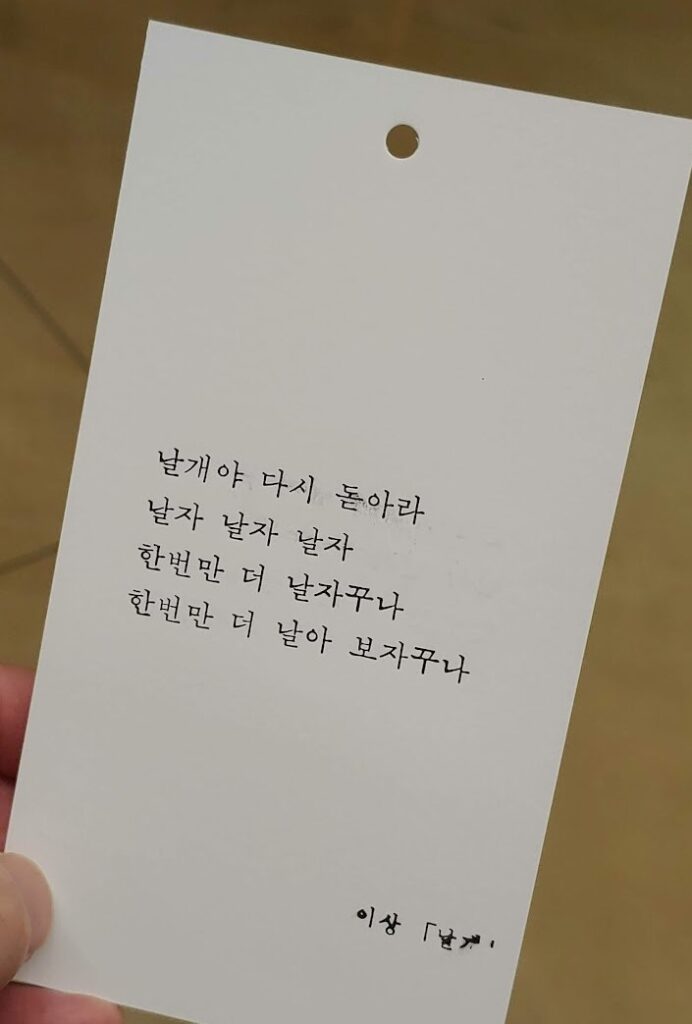 날개야 다시 돋아라
날자 날자 날자
한번만 더 날자꾸나
한번만 더 날아 보자꾸나
이상 「날개